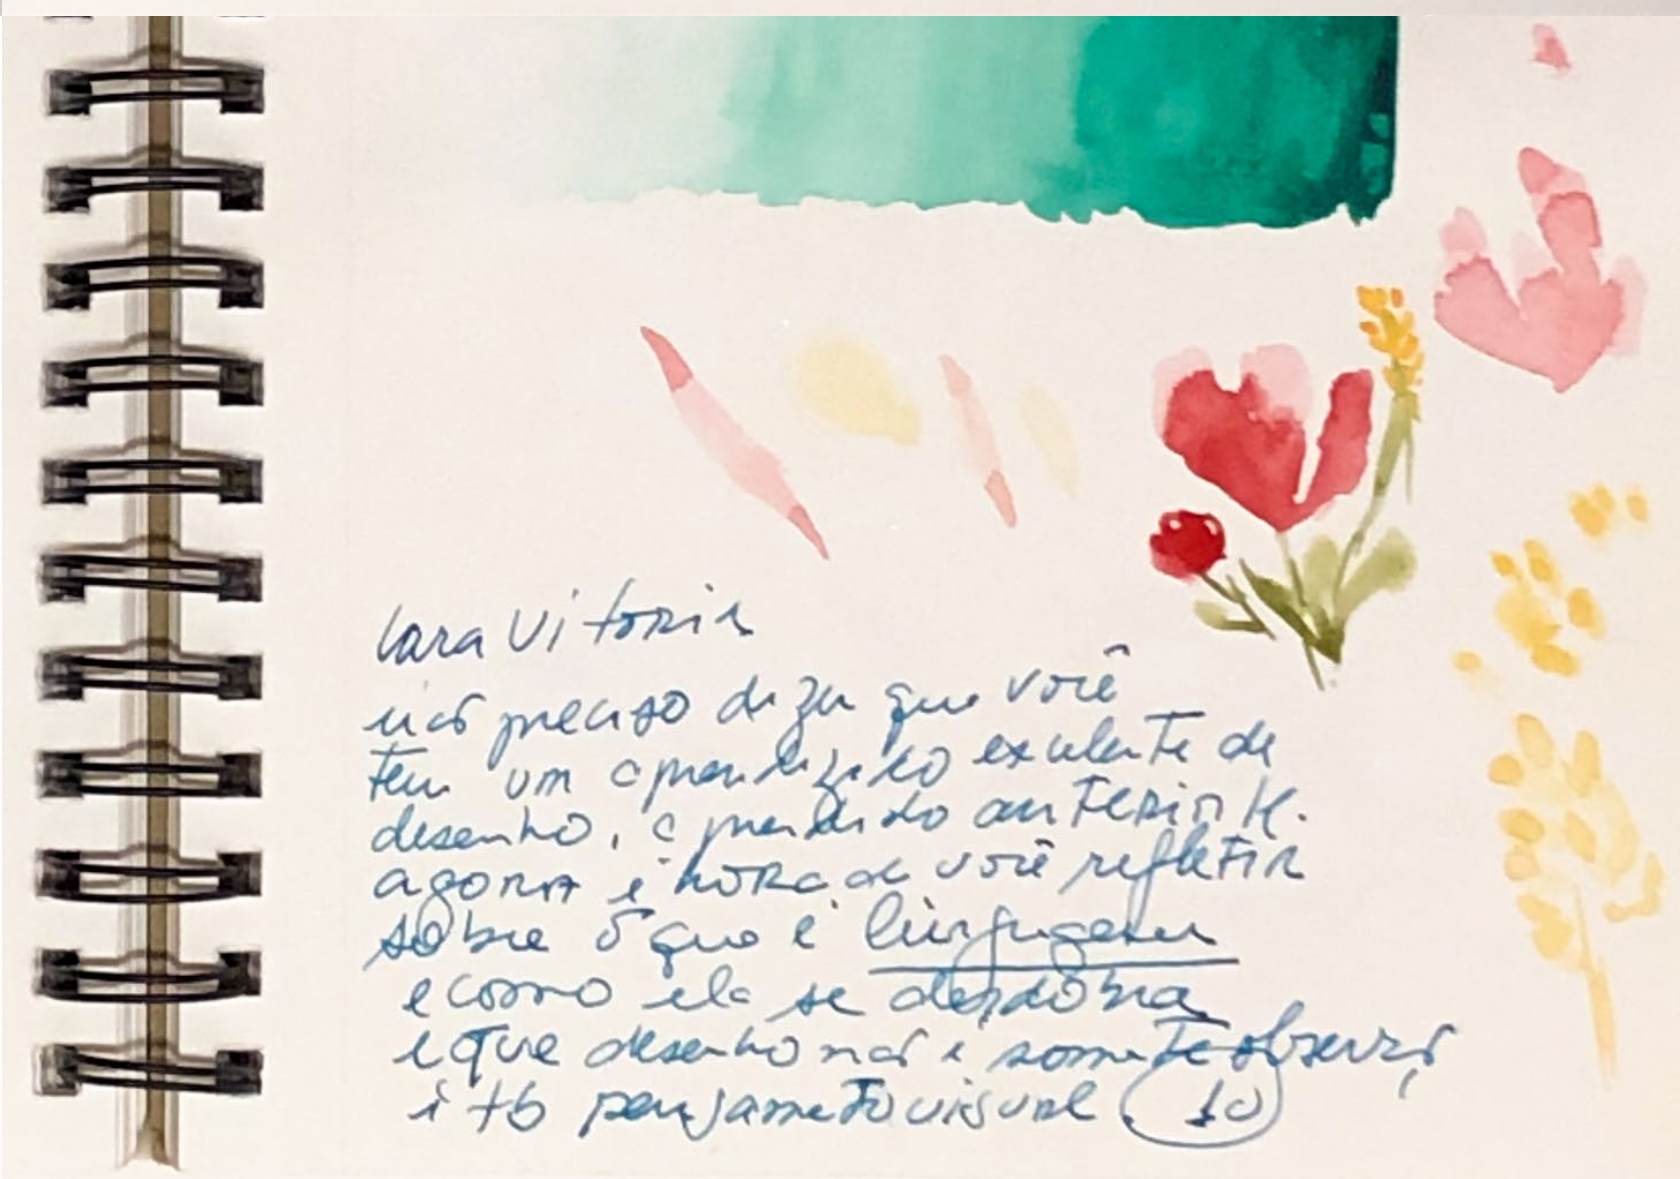 Cara Vitoria
não preciso dizer que você
tem um aprendizado excelente de
desenho, aprendido anteriorte.
agora é hora de você refletir
sobre o que é linguagem
e como ela se desdobra
e que desenho não é somente observação,
é tb pensamento visual 10